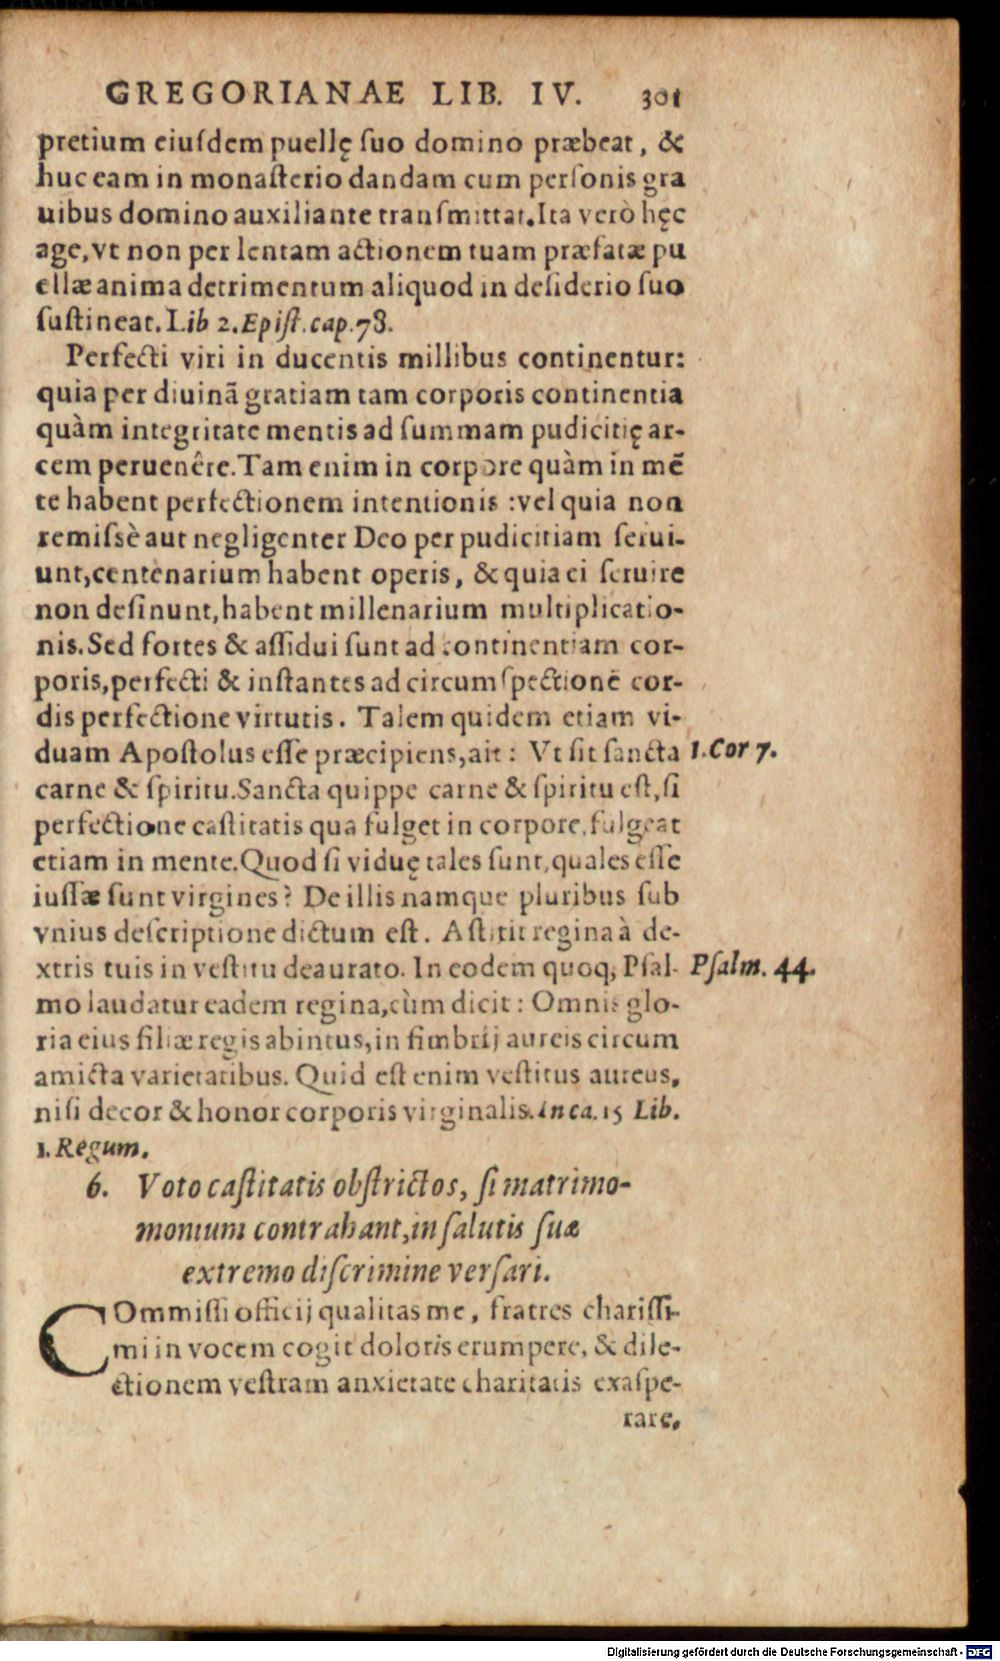 GREGORIANAE LIB. IV. 301
pretium eiuſdem puellę ſuo domino præbeat, &
huc eam in monaſterio dandam cum perſonis gra
uibus domino auxiliante tranſmittat. Ita verò hęc
age, vt non per lentam actionem tuam præfatæ pu
ellæ anima detrimentum aliquod in deſiderio ſuo
ſuſtineat. Lib 2. Epiſt. cap. 78.
Perfecti viri in ducentis millibus continentur:
quia per diuinã gratiam tam corporis continentia
quàm integritate mentis ad ſummam pudicitię ar-
cem peruenêre. Tam enim in corpore quàm in mẽ
te habent perfectionem intentionis : vel quia non
remiſsè aut negligenter Deo per pudicitiam ſerui-
unt, centenarium habent operis, & quia ei ſeruire
non deſinunt, habent millenarium multiplicatio-
nis. Sed fortes & aſſidui ſunt ad continentiam cor-
poris, perfecti & inſtantes ad circumſpectionẽ cor-
dis perfectione virtutis. Talem quidem etiam vi-
duam Apoſtolus eſſe præcipiens, ait : Vt ſit ſancta 1. Cor 7.
carne & ſpiritu. Sancta quippe carne & ſpiritu eſt, ſi
perfectione caſtitatis qua fulget in corpore, fulgeat
etiam in mente. Quod ſi viduę tales ſunt, quales eſſe
iuſſæ ſunt virgines? De illis namque pluribus ſub
vnius deſcriptione dictum eſt. Aſtitit regina à de-
xtris tuis in veſtitu deaurato. In eodem quoq; Pſal- Pſalm. 44.
mo laudatur eadem regina, cùm dicit : Omnis glo-
ria eius filiæ regis ab intus, in fimbrij aureis circum
amicta varietatibus. Quid eſt enim veſtitus aureus,
niſi decor & honor corporis virginalis. in ca. 15 Lib.
1. Regum.
6. Voto caſtitatis obſtrictos, ſi matrimo-
monium contrahant, in ſalutis ſuæ
extremo diſcrimine verſari.
COmmiſſi officij qualitas me, fratres chariſſi-
mi in vocem cogit doloris erumpere, & dile-
ctionem veſtram anxietate charitatis exaſpe-
rare.
Digitalisierung gefördert durch die Deutsche Forschungsgemeinschaft - DFG